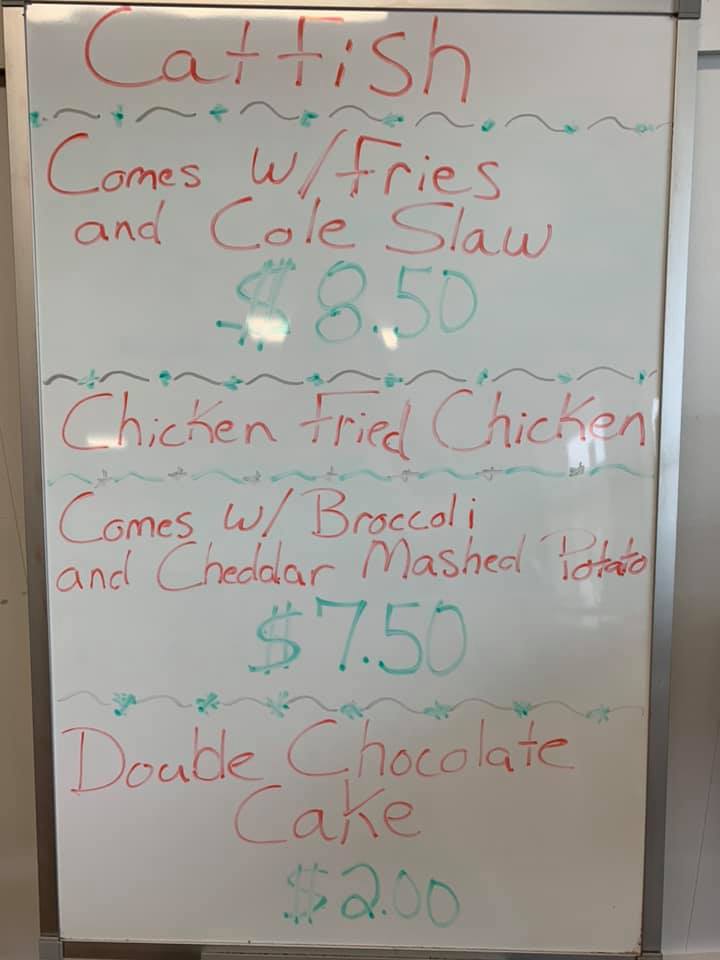 Catfish
Comes w/Fries
and Cole Slaw
$8.50
Chicken Fried Chicken
Comes w/ Broccoli
and Cheddar Mashed Potato
$7.50
Double Chocolate
Cake
$2.00